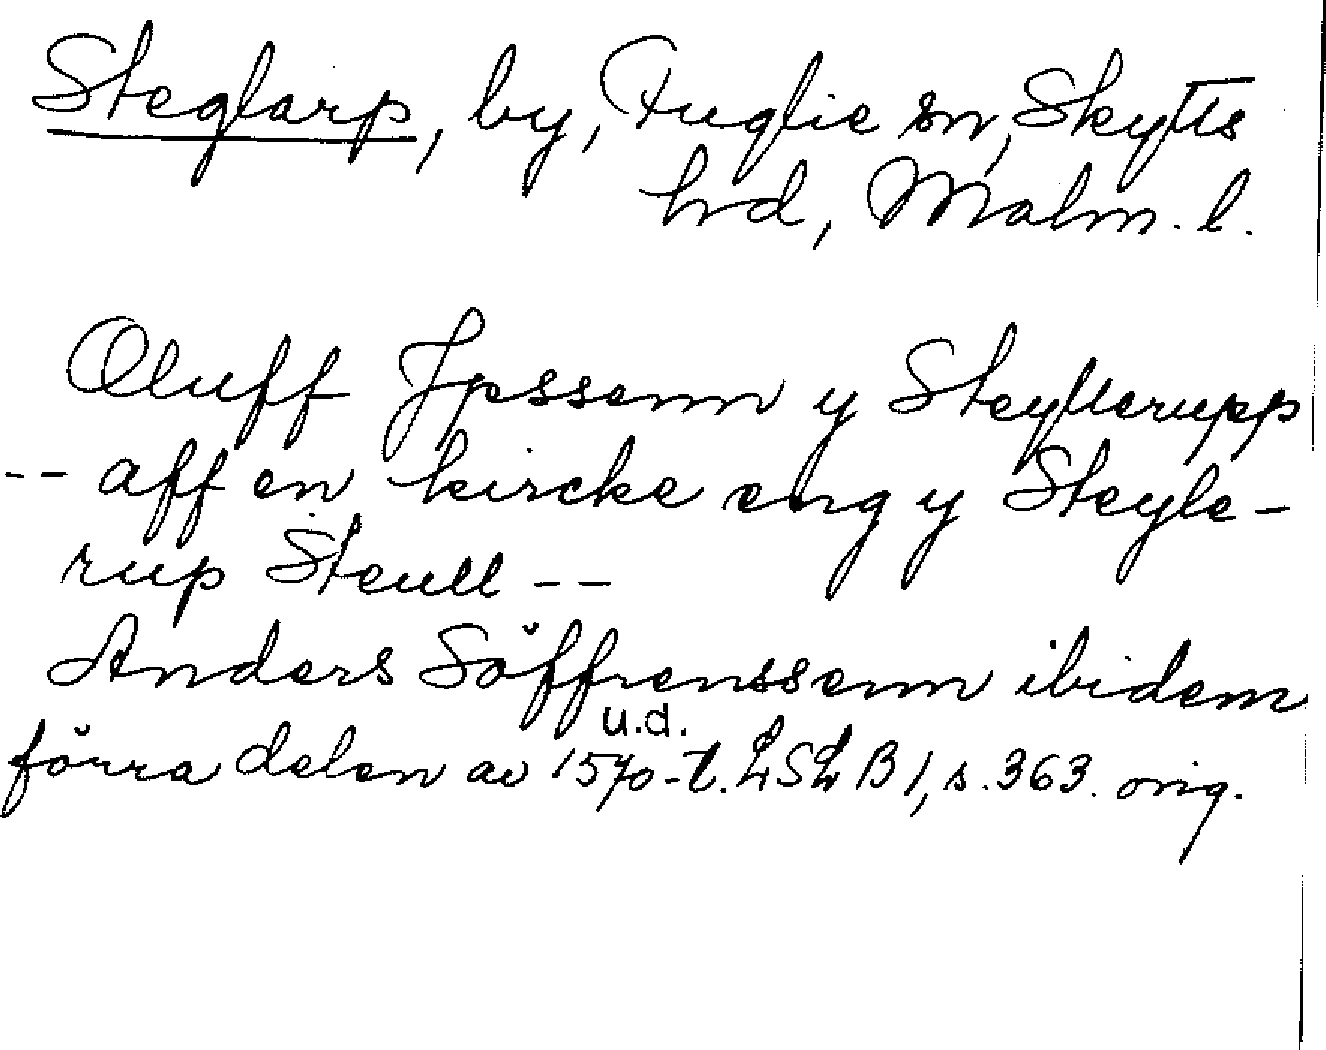 Steglarp, by, Fuglie sn, Skytts
hrd, Malm. l.
Oluff Jpssenn y Steyllerupp
-- aff en kircke eng y Steyle-
rup Steull --
Anders Söffrenssenn ibidem
u.d.
förra delen av 1570-t. LSL B 1, s. 363. orig.